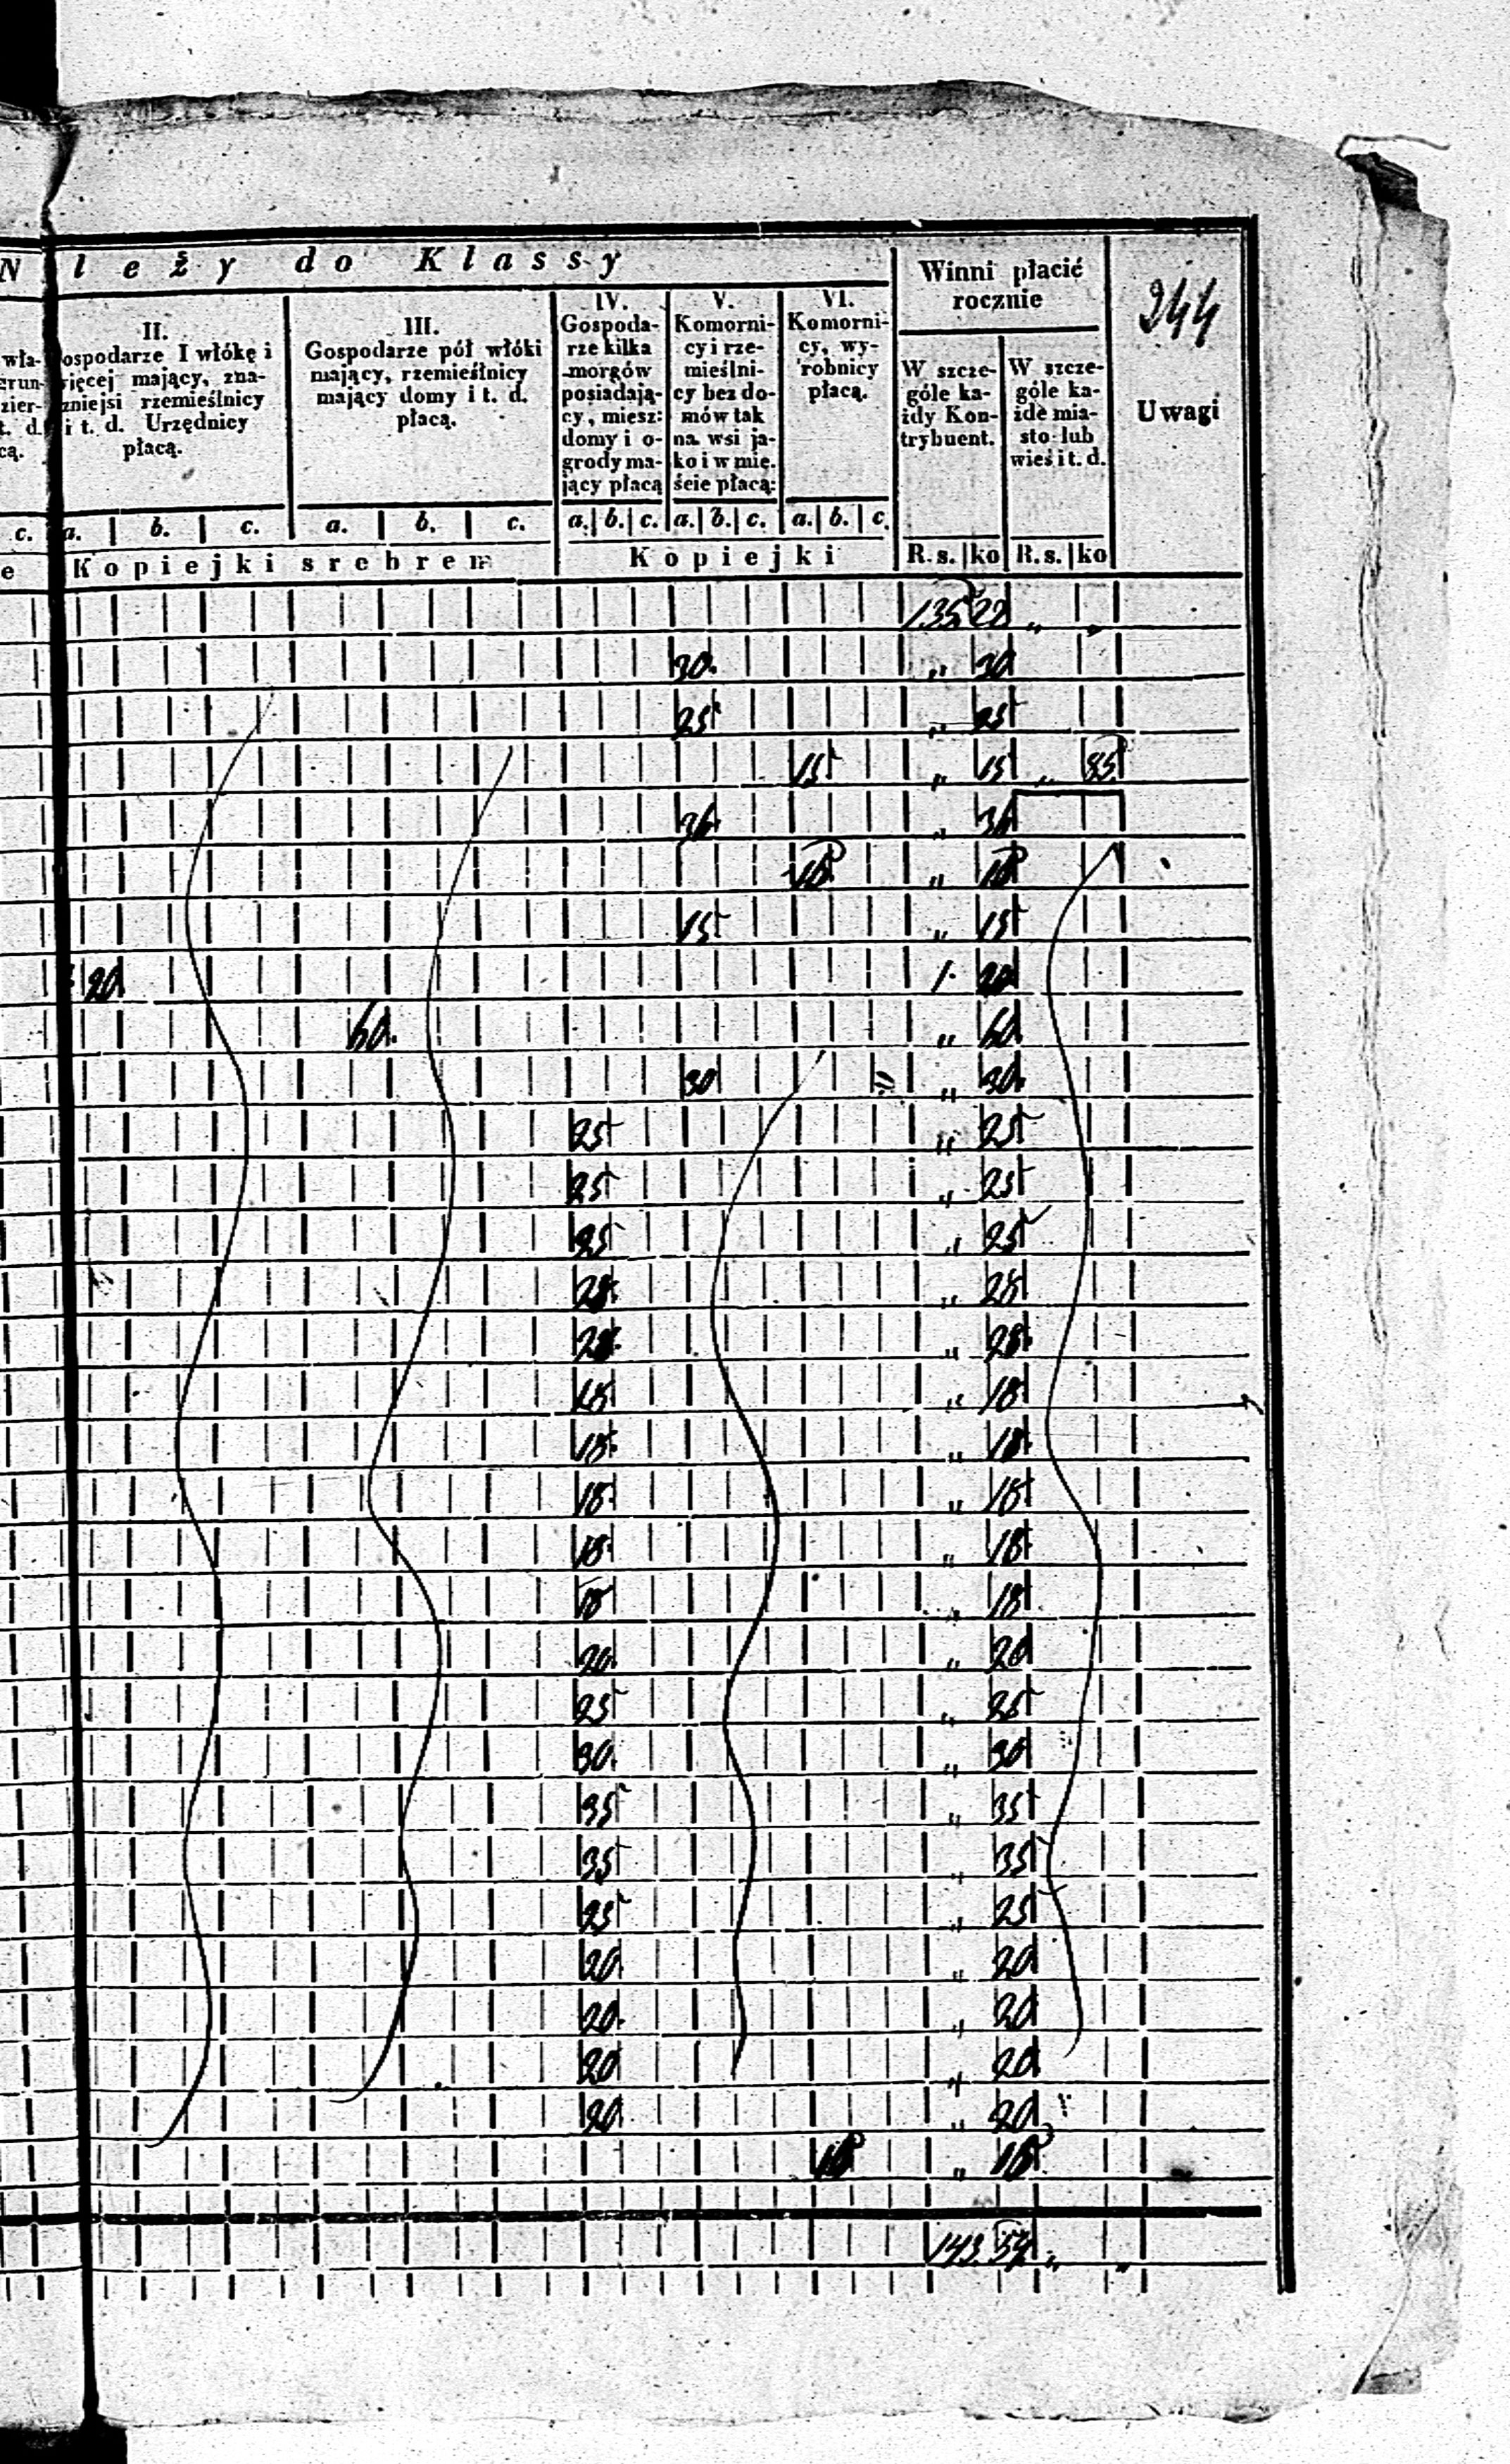 N leży do Klassy
Winni płacić
rocznie
244
II.
ospodarze I włókę i
ięcej mający, zna-
zniejsi rzemieślnicy
i t. d. Urzędnicy
płacą.
III.
Gospodarze pół włóki
mający, rzemieślnicy
mający domy i t. d.
płacą.
IV.
Gospoda-
rze kilka
morgów
posiadają-
cy, miesz:
domy i o-
grody ma-
jący płacą
V.
Komorni-
cy i rze-
mieślni-
cy bez do-
mów tak
na wsi ja-
ko i w mie.
ście płacą:
VI.
Komorni-
cy, wy-
robnicy
płacą.
W szcze-
góle ka-
idy Kon-
trybuent.
W szcze-
góle ka-
idé mia-
sto lub
wieś i t. d.
Uwagi
c. a. b. c. a. b. c. a. b. c. a. b. c. a. b. c.
e Kopiejki srebrem Kopiejki R. s. ko R. s. ko
135 22 „ „
30. „ 30
25 „ 25
15 „ 15 „ 85
30 „ 30
10 „ 10
15 „ 15
20 1. 20
60. „ 60
30 „ 30.
25 „ 25
25 „ 25
25 „ 25
28. „ 28
28. „ 28.
18 „ 18
18. „ 18.
18. „ 18
18 „ 18
18 „ 18
20. „ 20
25 „ 25
30. „ 30
35 „ 35
35 „ 35
25 „ 25
20 „ 20
20. „ 20
20 „ 20
20 „ 20
10 „ 10
143 54 „ „